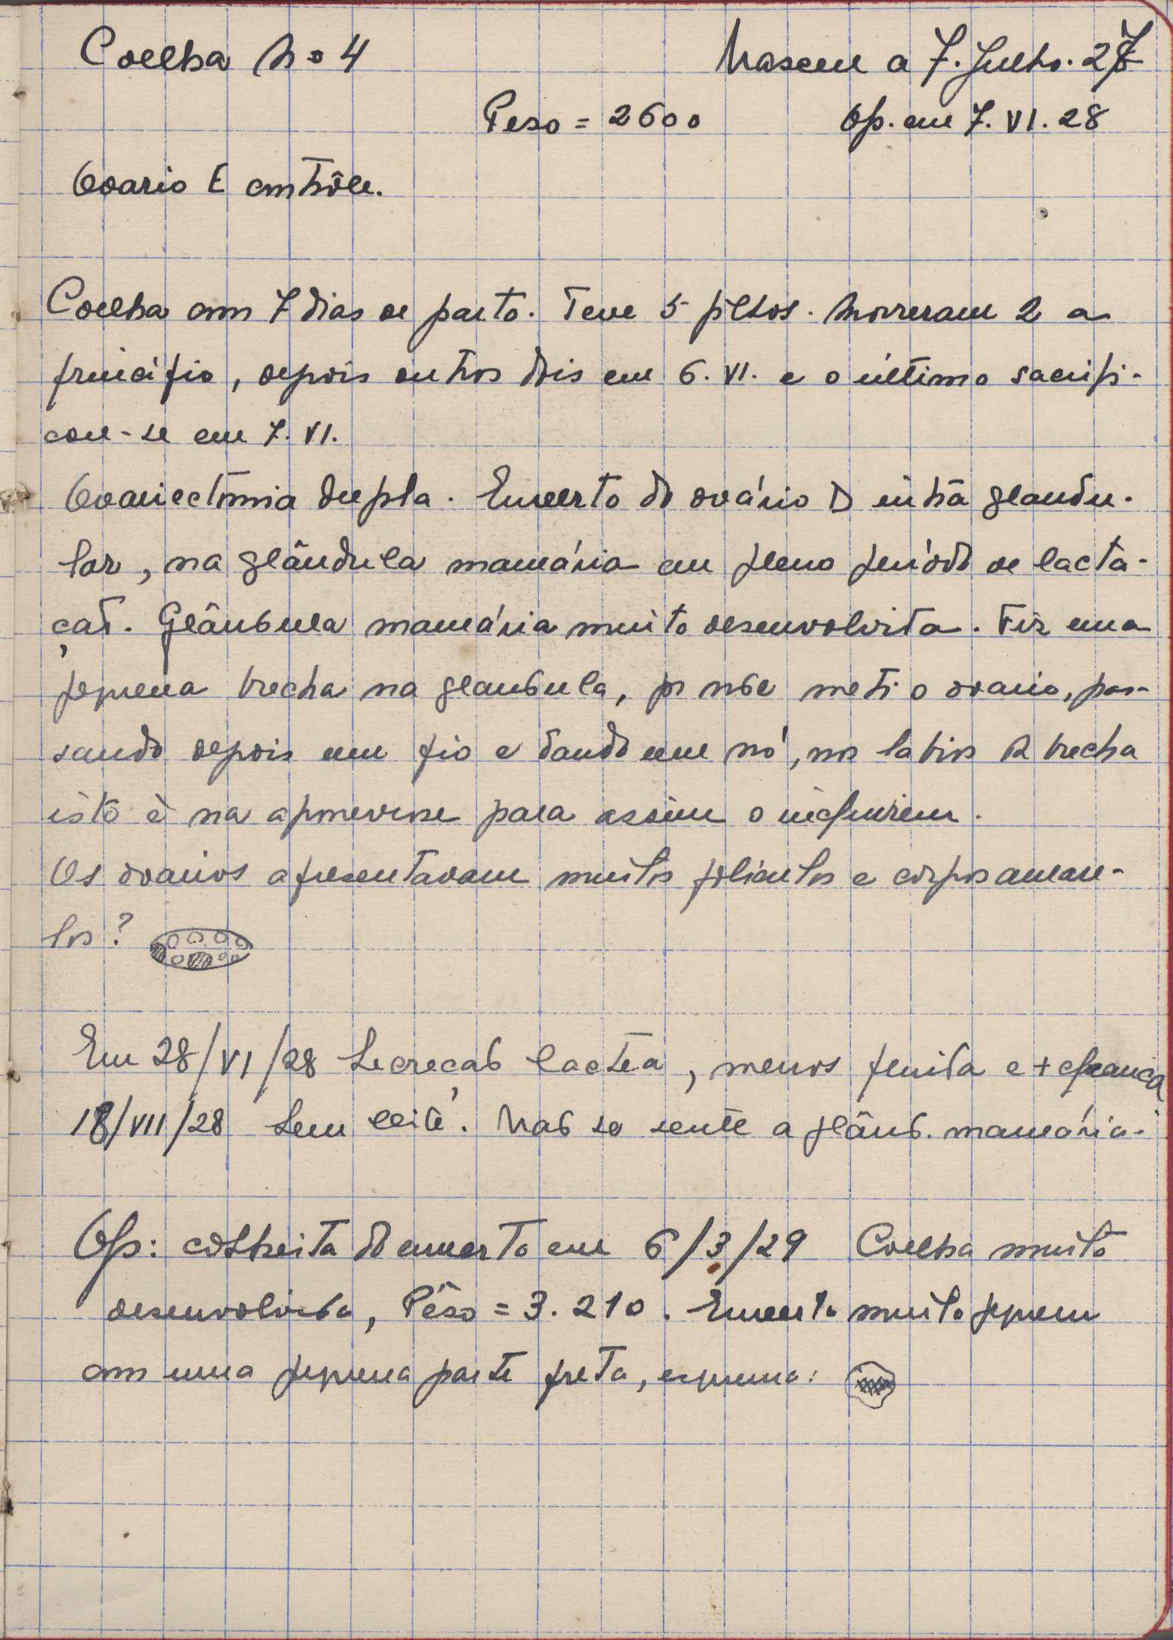 Coelha no 4 Nasceu a 7. Julho. 27
Peso = 2600 Op. em 7. VI. 28
Ovario E contrôle.
Coelha com 7 dias de parto. Teve 5 filhos. Morreram 2 a
principio, depois outros dois em 6. VI. e o último sacrifi-
cou-se em 7. VI.
Ovariectomia dupla. Enxerto do ovário D intra glandu-
lar, na glândula mamária em pleno período de lacta-
ção. Glândula mamária muito desenvolvida. Fiz uma
pequena brecha na glandula, por onde meti o ovario, pas-
sando depois um fio e dando um nó, nos labios da brecha
isto è na aponevrose para assim o incluirem.
Os ovarios apresentavam muitos foliculos e corpos amare-
los?
Em 28/VI/28 Secreção lactea, menos fluida e + espessa
18/VII/28 Sem leite. Não se sente a glând. mamária.
Op: colheita do enxerto em 6/3/29 Coelha muito
desenvolvida, Pêso = 3.210. Enxerto muito pequeno
com uma pequena parte preta, esquema: